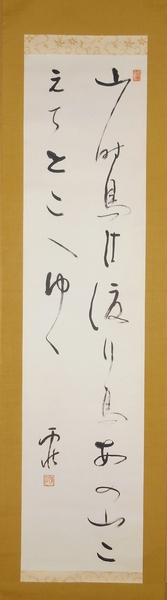 山時鳥は渡り鳥あの山こ
えてとこへゆく